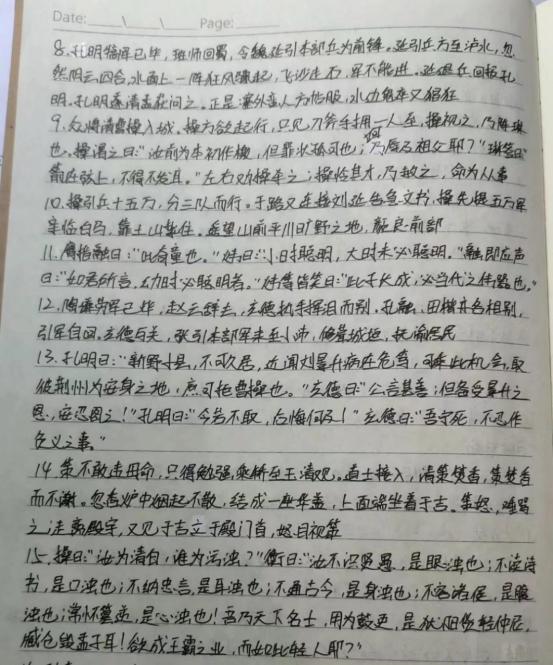 Date: \ \ Page:
8.孔明犒军已毕,班师回蜀,令魏延引本部兵为前锋。延引兵方至泸水,忽
然阴云四合,水面上一阵狂风骤起,飞沙走石,军不能进。延退兵回报孔
明。孔明遂请孟获问之。正是:塞外蛮人方帖服,水边鬼卒又猖狂
9.众将请曹操入城。操方欲起行,只见刀斧手拥一人至,操视之,乃陈琳
也。操谓之曰:"汝前为本初作檄,但罪状孤可也;何乃辱及祖父耶?"琳答曰:
箭在弦上,不得不发耳。"左右劝操杀之;操怜其才,乃赦之,命为从事
10.操引兵十五万,分三队而行。于路又连接刘延告急文书,操先提五万军
亲临白马,靠土山扎住。遥望山前平川旷野之地,颜良前部
11.膺指融曰:"此奇童也。"炜曰:"小时聪明,大时未必聪明。"融即应声
曰:"如君所言,幼时必聪明者。"炜等皆笑曰:"此子长成,必当代之伟器也。"
12.陶谦劳军已毕,赵云辞去,玄德执手挥泪而别。孔融、田楷亦各相别,
引军自回。玄德与关,张引本部军来至小沛,修葺城垣,抚谕居民
13.孔明曰:"新野小县,不可久居,近闻刘景升病在危笃,可乘此机会,取
彼荆州为安身之地,庶可拒曹操也。"玄德曰:"公言甚善;但备受景升之
恩,安忍图之!"孔明曰:"今若不取,后悔何及!"玄德曰:"吾宁死,不忍作
负义之事。"
14.策不敢违母命,只得勉强乘轿至玉清观。道士接入,请策焚香,策焚香
而不谢。忽香炉中烟起不散,结成一座华盖,上面端坐着于吉。策怒,唾骂
之;走离殿宇,又见于吉立于殿门首,怒目视策
15.操曰:"汝为清白,谁为污浊?"衡曰:"汝不识贤愚,是眼浊也;不读诗
书,是口浊也;不纳忠言,是耳浊也;不通古今,是身浊也;不容诸侯,是腹
浊也;常怀篡逆,是心浊也!吾乃天下名士,用为鼓吏,是犹阳货轻仲尼,
臧仓毁孟子耳!欲成王霸之业,而如此轻人耶?"